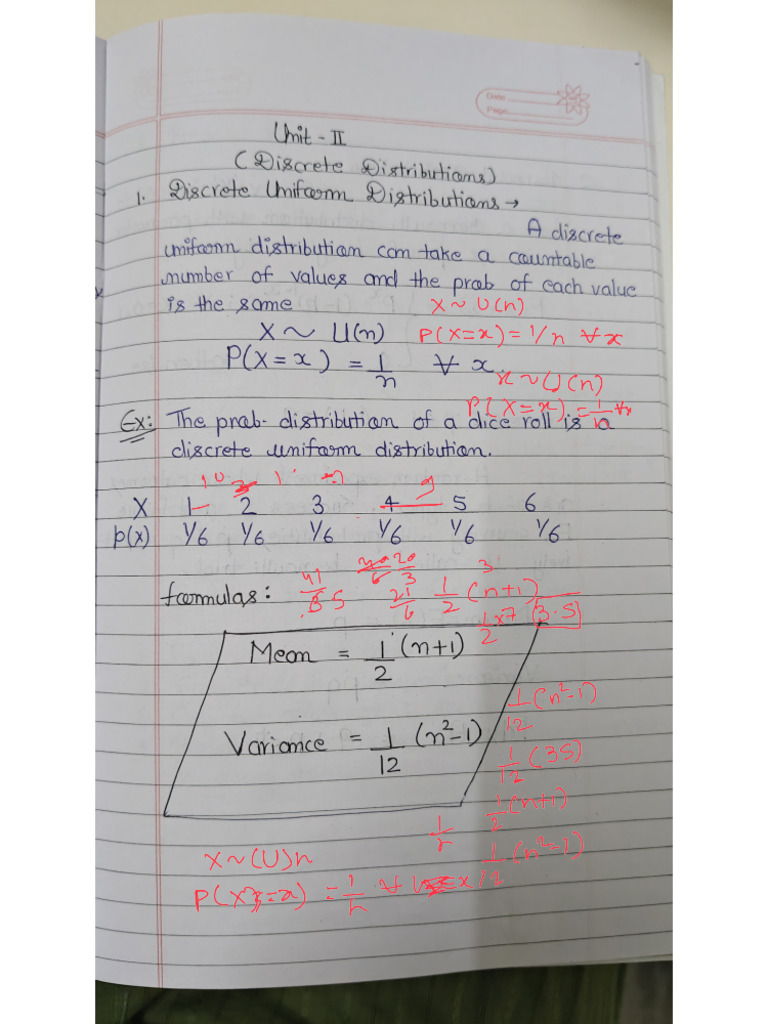 Date
Page
Unit - II
(Discrete Distributions)
1. Discrete Uniform Distributions →
A discrete
uniform distribution can take a countable
number of values and the prob of each value
is the same
X ~ U(n)
X ~ U(n)
P(X=x) = 1/n ∀ x
P(X=x) = 1/n ∀ x
x ~ U(n)
P(X=x) = 1/10 ∀x
Ex: The prob. distribution of a dice roll is a
discrete uniform distribution.
X 1 2 3 4 5 6
p(x) 1/6 1/6 1/6 1/6 1/6 1/6
20/3 3
formulas: 21/6 1/2 (n+1)
1/2 x7 (3.5)
Mean = 1/2 (n+1)
1/12 (n²-1)
Variance = 1/12 (n²-1)
1/12 (35)
1/2 (n+1)
1/n
1/12 (n²-1)
X ~ (U)n
= 1/n ∀